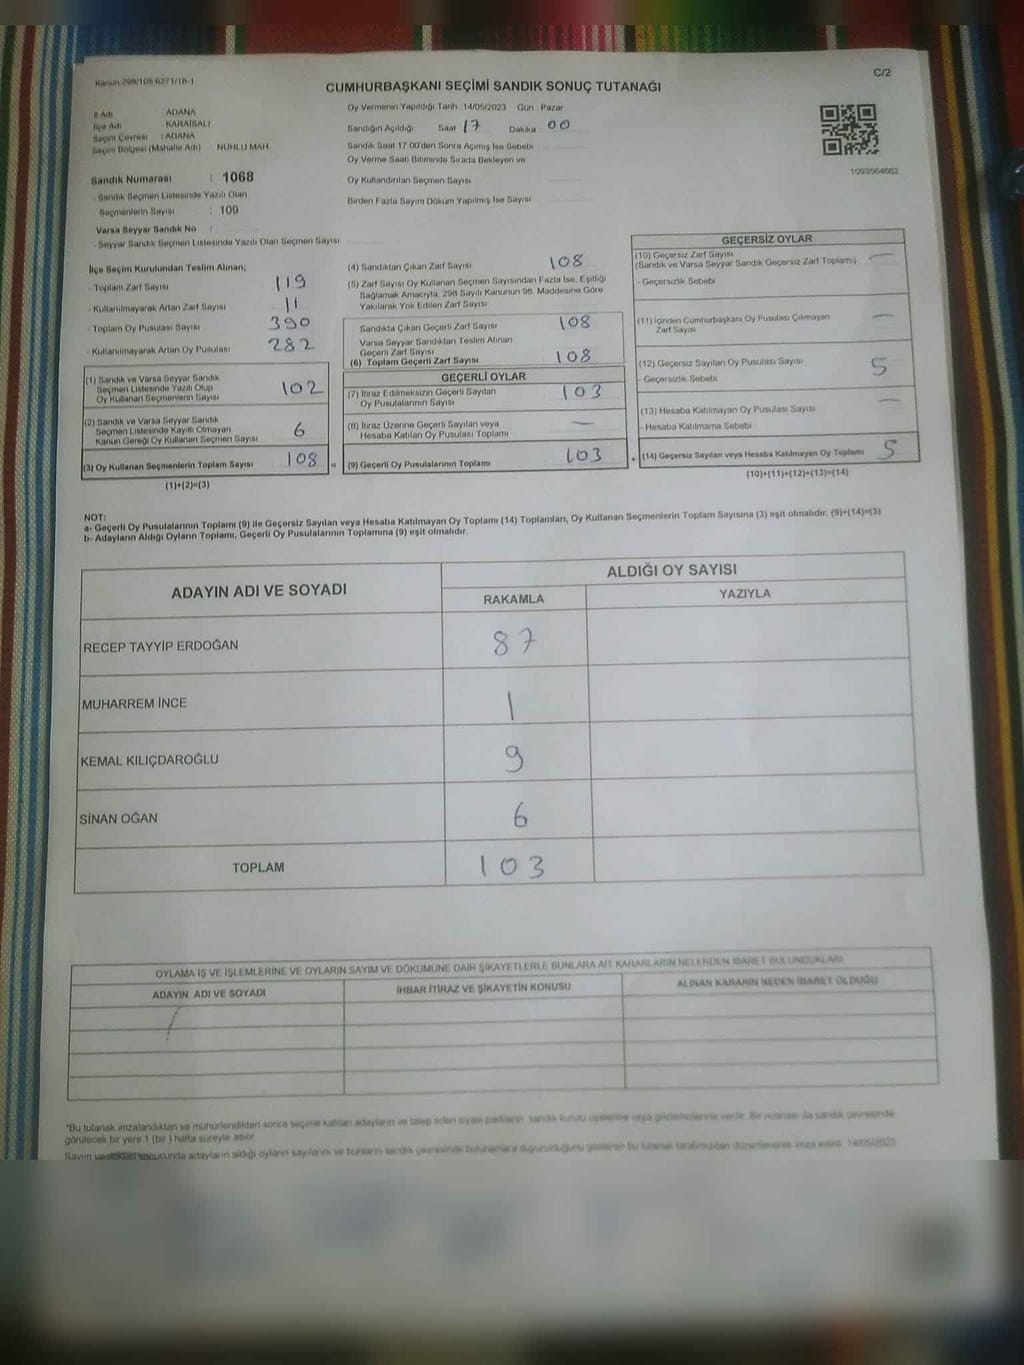 Kanun 298/105 6271/18-1
C/2
CUMHURBAŞKANI SEÇİMİ SANDIK SONUÇ TUTANAĞI
İl Adı : ADANA
İlçe Adı : KARAİSALI
Seçim Çevresi : ADANA
Seçim Bölgesi (Mahalle Adı) : NUHLU MAH
Sandık Numarası : 1068
- Sandık Seçmen Listesinde Yazılı Olan
Seçmenlerin Sayısı : 109
Varsa Seyyar Sandık No :
- Seyyar Sandık Seçmen Listesinde Yazılı Olan Seçmen Sayısı
Oy Vermenin Yapıldığı Tarih 14/05/2023 Gün : Pazar
Sandığın Açıldığı Saat 17 Dakika 00
Sandık Saat 17.00'den Sonra Açımış İse Sebebi
Oy Verme Saati Bitiminde Sırada Bekleyen ve
Oy Kullandırılan Seçmen Sayısı
Birden Fazla Sayım Döküm Yapılmış İse Sayısı
1093564662
İlçe Seçim Kurulundan Teslim Alınan;
- Toplam Zarf Sayısı 119
- Kullanılmayarak Artan Zarf Sayısı 11
- Toplam Oy Pusulası Sayısı 390
- Kullanılmayarak Artan Oy Pusulası 282
(1) Sandık ve Varsa Seyyar Sandık
Seçmen Listesinde Yazılı Olup
Oy Kullanan Seçmenlerin Sayısı 102
(2) Sandık ve Varsa Seyyar Sandık
Seçmen Listesinde Kayıtlı Olmayan
Kanun Gereği Oy Kullanan Seçmen Sayısı 6
(3) Oy Kullanan Seçmenlerin Toplam Sayısı 108 =
(1)+(2)=(3)
(4) Sandıktan Çıkan Zarf Sayısı 108
(5) Zarf Sayısı Oy Kullanan Seçmen Sayısından Fazla İse, Eşitliği
Sağlamak Amacıyla, 298 Sayılı Kanunun 98. Maddesine Göre
Yakılarak Yok Edilen Zarf Sayısı
Sandıkta Çıkan Geçerli Zarf Sayısı 108
Varsa Seyyar Sandıktan Teslim Alınan
Geçerli Zarf Sayısı
(6) Toplam Geçerli Zarf Sayısı 108
GEÇERLİ OYLAR
(7) İtiraz Edilmeksizin Geçerli Sayılan
Oy Pusulalarının Sayısı 103
(8) İtiraz Üzerine Geçerli Sayılan veya
Hesaba Katılan Oy Pusulası Toplamı —
(9) Geçerli Oy Pusulalarının Toplamı 103 +
GEÇERSİZ OYLAR
(10) Geçersiz Zarf Sayısı —
(Sandık ve Varsa Seyyar Sandık Geçersiz Zarf Toplamı)
- Geçersizlik Sebebi
(11) İçinden Cumhurbaşkanı Oy Pusulası Çıkmayan —
Zarf Sayısı
(12) Geçersiz Sayılan Oy Pusulası Sayısı 5
- Geçersizlik Sebebi
(13) Hesaba Katılmayan Oy Pusulası Sayısı —
- Hesaba Katılmama Sebebi
(14) Geçersiz Sayılan veya Hesaba Katılmayan Oy Toplamı 5
(10)+(11)+(12)+(13)=(14)
NOT:
a- Geçerli Oy Pusulalarının Toplamı (9) ile Geçersiz Sayılan veya Hesaba Katılmayan Oy Toplamı (14) Toplamları, Oy Kullanan Seçmenlerin Toplam Sayısına (3) eşit olmalıdır. (9)+(14)=(3)
b- Adayların Aldığı Oyların Toplamı, Geçerli Oy Pusulalarının Toplamına (9) eşit olmalıdır.
ADAYIN ADI VE SOYADI
ALDIĞI OY SAYISI
RAKAMLA YAZIYLA
RECEP TAYYİP ERDOĞAN 87
MUHARREM İNCE 1
KEMAL KILIÇDAROĞLU 9
SİNAN OĞAN 6
TOPLAM 103
OYLAMA İŞ VE İŞLEMLERİNE VE OYLARIN SAYIM VE DÖKÜMÜNE DAİR ŞİKAYETLERLE BUNLARA AİT KARARLARIN NELERDEN İBARET BULUNDUKLARI
ADAYIN ADI VE SOYADI İHBAR İTİRAZ VE ŞİKAYETİN KONUSU ALINAN KARARIN NEDEN İBARET OLDUĞU
*Bu tutanak imzalandıktan ve mühürlendikten sonra seçime katılan adayların ve talep eden siyasi partilerin sandık kurulu üyelerine veya gözlemcilerine verilir. Bir nüshası da sandık çevresinde
görülecek bir yere 1 (bir) hafta süreyle asılır.
Sayım ve sonucunda adayların aldığı oyların sayılarını ve bunların sandık çevresinde bulunanlara duyurulduğunu gösteren bu tutanak tarafımızdan düzenlenerek imza edildi. 14/05/2023